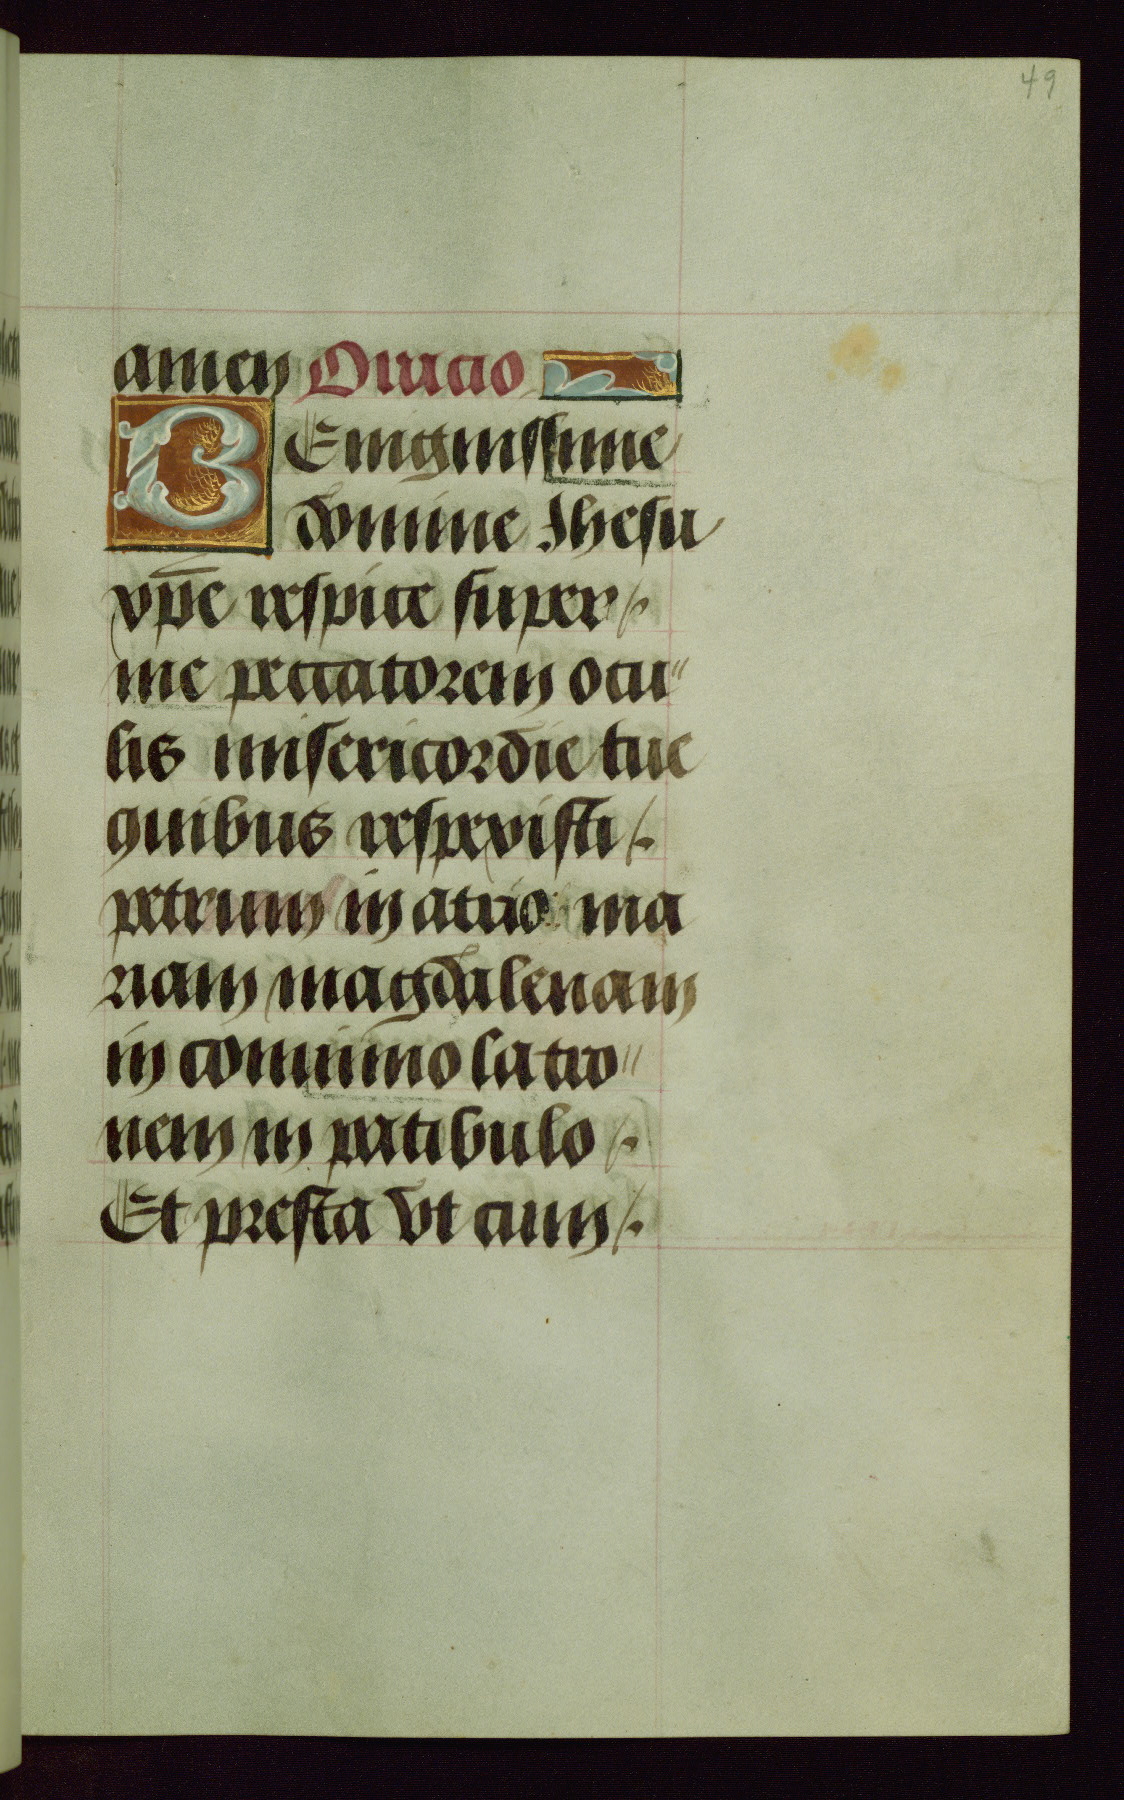 49
amen Oracio
BEnignissime
domine Jhesu
xpe respice super
me peccatorem ocu"
lis misericordie tue
quibus respexisti
petrum in atrio: ma
riam magdalenam
in conuiuio latro"
nem in patibulo
Et presta vt cum